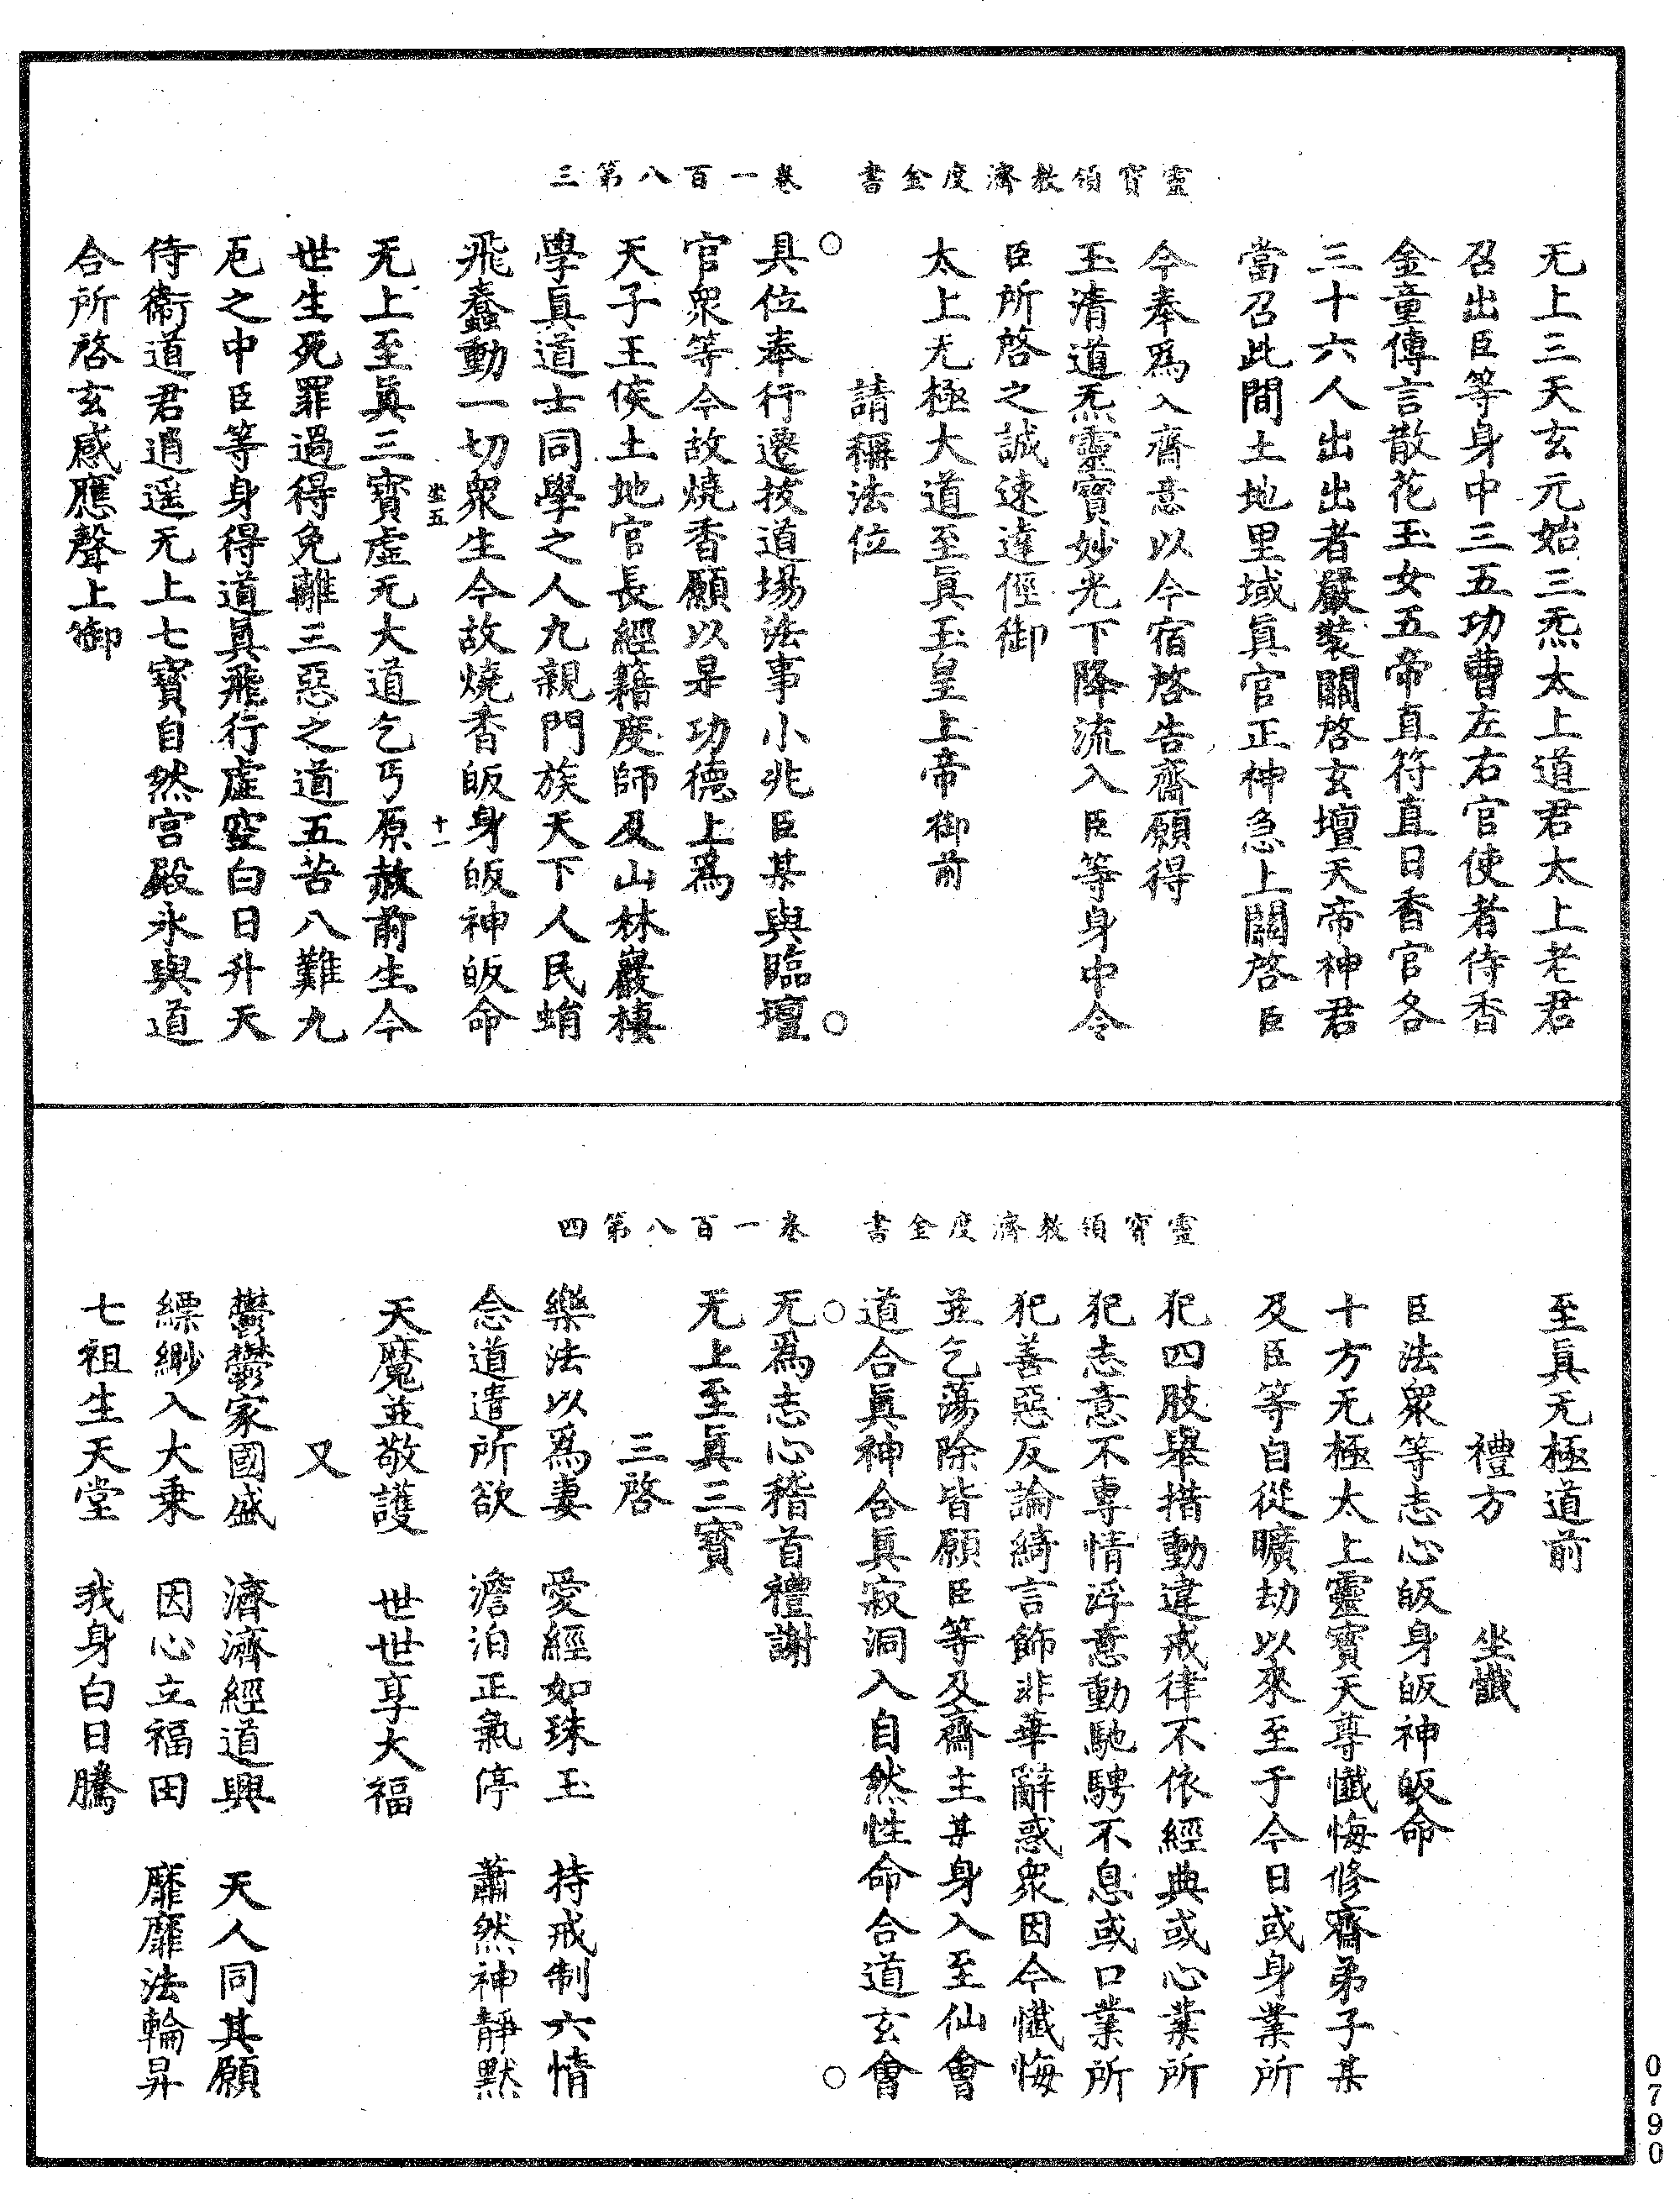 靈寶領教濟度金書　卷一百八第三
无上三天玄元始三炁太上道君太上老君
召出臣等身中三五功曹左右官使者侍香
金童傳言散花玉女五帝直符直日香官各
三十六人出出者嚴裝關啓玄壇天帝神君
當召此間土地里域眞官正神急上關啓臣
今奉爲入齋意以今宿啓告齋願得
玉清道炁靈寶妙光下降流入臣等身中令
臣所啓之誠速達徑御
太上无極大道至眞玉皇上帝御前
請稱法位
具位奉行遷拔道場法事小兆臣某與臨壇
官衆等今故燒香願以是功德上爲
天子王侯土地官長經籍度師及山林巖棲
學眞道士同學之人九親門族天下人民蛸
飛蠢動一切衆生今故燒香皈身皈神皈命
坐五　十一
无上至眞三寶虛无大道乞丐原赦前生今
世生死罪過得免離三惡之道五苦八難九
厄之中臣等身得道眞飛行虛空白日升天
侍衞道君逍遥无上七寶自然宫殿永與道
合所啓玄感應聲上御
靈寶領教濟度金書　卷一百八第四
至眞无極道前
禮方　坐懺
臣法衆等志心皈身皈神皈命
十方无極太上靈寶天尊懺悔修齋弟子某
及臣等自從曠劫以來至于今日或身業所
犯四肢舉措動違戒律不依經典或心業所
犯志意不專情浮意動馳騁不息或口業所
犯善惡反論綺言飾非華辭惑衆因今懺悔
並乞蕩除皆願臣等及齋主某身入至仙會
道合眞神合眞寂洞入自然性命合道玄會
无爲志心稽首禮謝
无上至眞三寶
三啓
樂法以爲妻　愛經如珠玉　持戒制六情
念道遣所欲　澹泊正氣停　蕭然神靜默
天魔並敬護　世世享大福
又
鬱鬱家國盛　濟濟經道興　天人同其願
縹緲入大乘　因心立福田　靡靡法輪昇
七祖生天堂　我身白日騰
0790